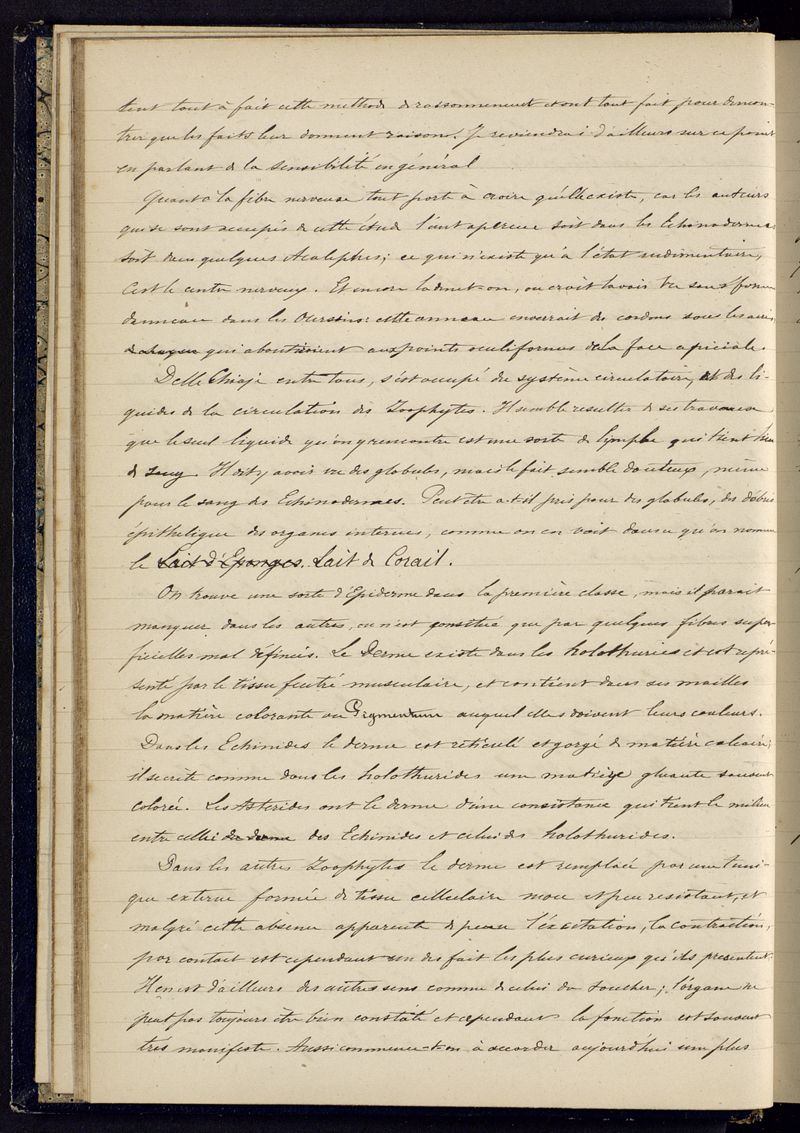 tent tout à fait cette methode de raisonnement et ont tout fait pour demon-
trer que les faits leur donnent raison. Je reviendrai d'ailleurs sur ce point
en parlant de la sensibilité en général
Quant à la fibre nerveuse tout porte à croire qu'elle existe, car les auteurs
qui se sont occupés de cette étude l'ont aperçue soit dans les Echinodermes
soit dans quelques Acalephes; ce qui n'existe qu'à l'état rudimentaire,
c'est le centre nerveux. Et encore l'admet-on, ou croit l'avoir vu sous forme
d'anneau dans les Oursins: cette anneau enverrait des cordons sous les
qui aboutiraient aux points oculiformes de la face apiciale.
Delle Chiaje entre tous, s'est occupé du système circulatoire, et des li-
quides de la circulation des Zoophytes. Il semble resulter de ses travaux
que le seul liquide qu'on y rencontre est une sorte de lymphe qui tient lieu
de sang. Il dit y avoir vu des globules, mais le fait semble douteux, même
pour le sang des Echinodermes. Peut être a-t-il pris pour des globules, des débris
épithelique des organes internes, comme on en voit dans ce qu'on nomme
le Lait d'Eponges. Lait de Corail.
On trouve une sorte d'Epiderme dans la première classe, mais il parait
manquer dans les autres, ou n'est constitué que par quelques fibres super-
ficielles mal définies. Le Derme existe dans les holothuries et est repré-
senté par le tissu feutré musculaire, et contient dans ses mailles
la matière colorante ou Pigmentum auquel elles doivent leurs couleurs.
Dans les Echinides le derme est réticulé et gorgé de matière calcaire;
il secrète comme dans les holothurides une matière gluante souvent
colorée. Les Asterides ont le derme d'une consistance qui tient le milieu
entre celui du derme des Echinides et celui des holothurides.
Dans les autres Zoophytes le derme est remplacé par une tuni-
que externe formée de tissu cellulaire mou et peu resistant, et
malgré cette absence apparente de peau l'éxcitation, la contraction,
par contact est cependant un des fait les plus curieux qu'ils presentent.
Il en est d'ailleurs des autres sens comme de celui du Toucher; l'organe ne
peut pas toujours être bien constaté et cependant la fonction est souvent
très manifeste. Aussi commence-t-on à accorder aujourd'hui une plus